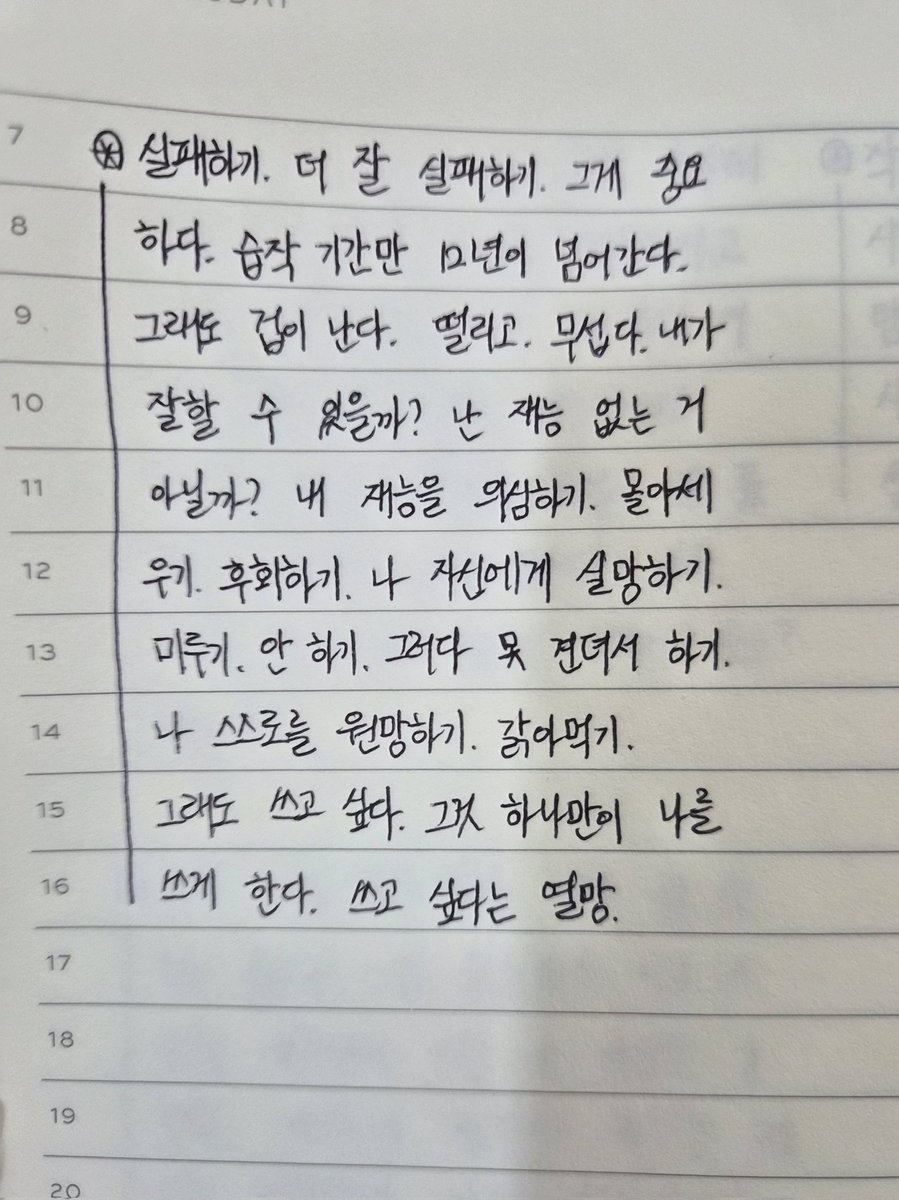 7 ⊛ 실패하기. 더 잘 실패하기. 그게 중요
8 하다. 습작 기간만 12년이 넘어간다.
9 그래도 겁이 난다. 떨리고. 무섭다. 내가
10 잘할 수 있을까? 난 재능 없는 거
11 아닐까? 내 재능을 의심하기. 몰아세
12 우기. 후회하기. 나 자신에게 실망하기.
13 미루기. 안 하기. 그러다 못 견뎌서 하기.
14 나 스스로를 원망하기. 갉아먹기.
15 그래도 쓰고 싶다. 그것 하나만이 나를
16 쓰게 한다. 쓰고 싶다는 열망.
17
18
19
20